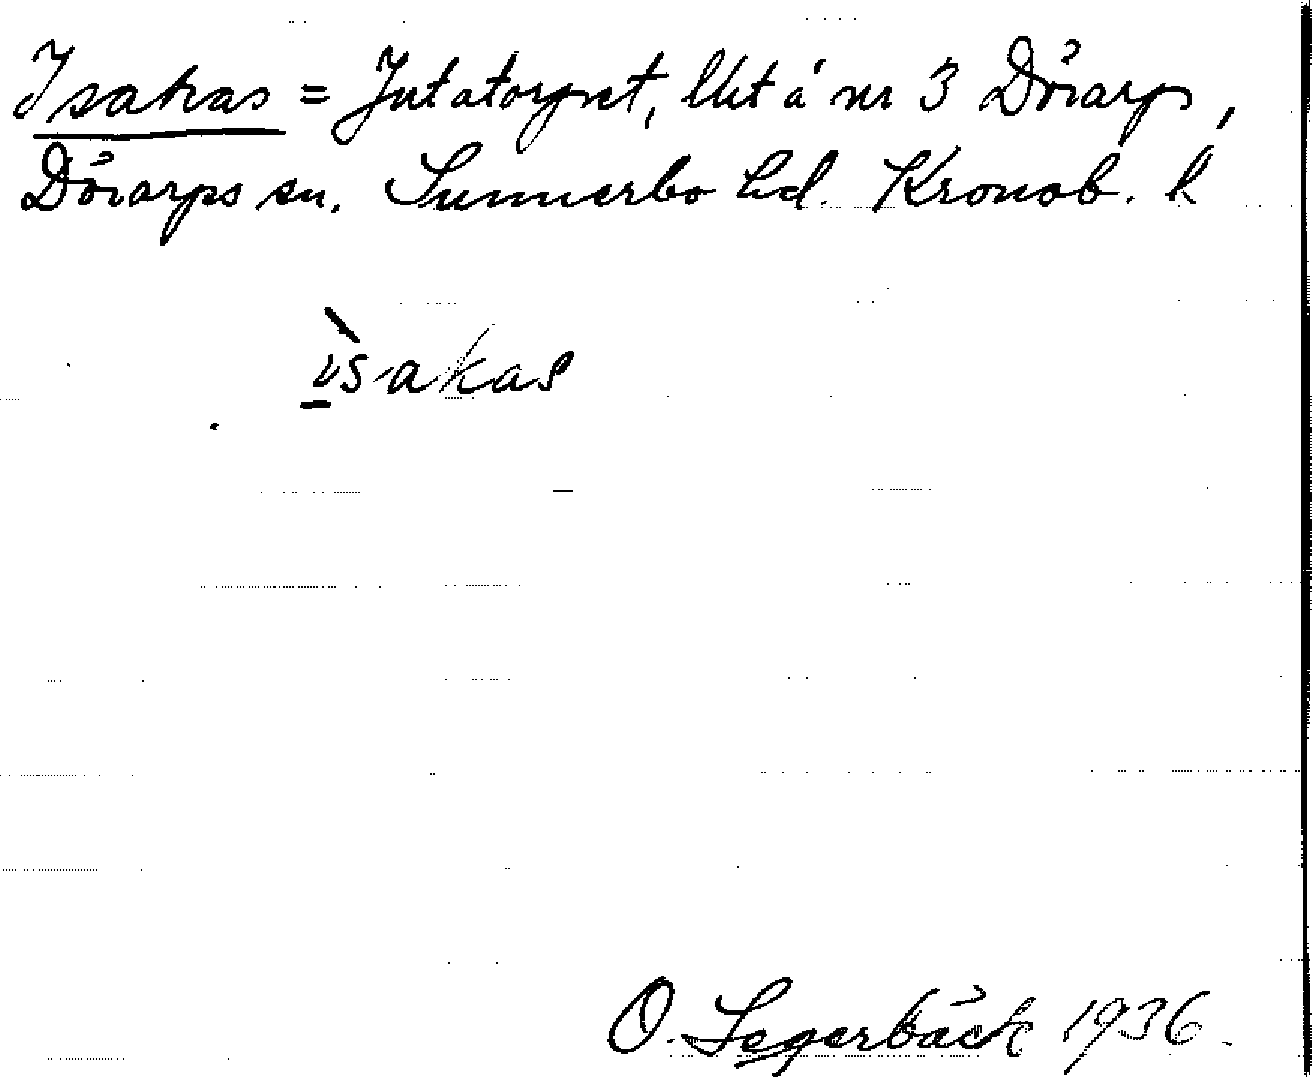 Isakas = Jutatorpet, lht å nr 3 Dörarp,
Dörarps sn. Sunnerbo hd. Kronob. l
ìsakas
O. Segerbäck 1936.